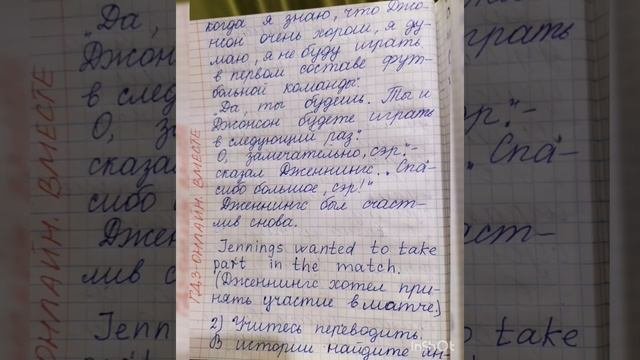 когда я знаю, что Джо-
нсон очень хорош, я ду-
маю, я не буду играть
в первом составе фут-
больной команды".
Да, ты будешь. Ты и
Джонсон будете играть
в следующий раз".
О, замечательно, сэр". -
сказал Дженнингс. „Спа-
сибо большое, сэр!"
Дженнингс был счаст-
лив снова.
Jennings wanted to take
part in the match.
(Дженнингс хотел при-
нять участие в матче.)
2) Учитесь переводить.
В истории найдите ан-
ГДЗ ОНЛАЙН. ВМЕСТЕ